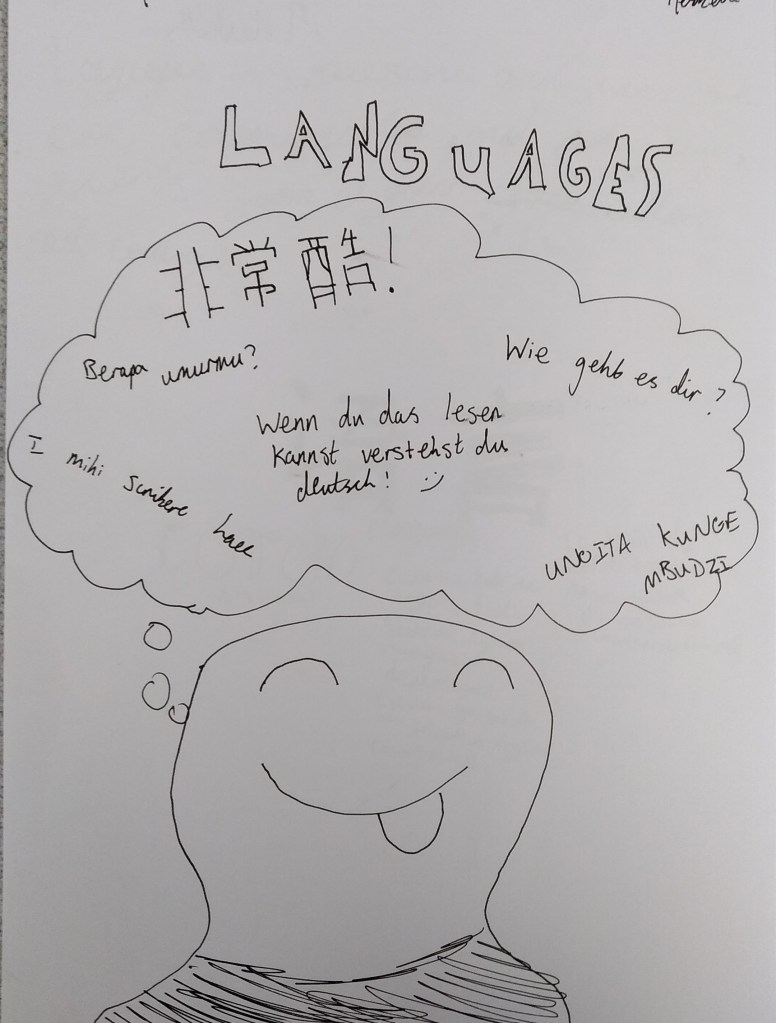 LANGUAGES
非常酷!
Berapa umurmu?
Wie geht es dir?
Wenn du das lesen
kannst verstehst du
deutsch! :)
I mihi scribere haec
UNOITA KUNGE
MBUDZI